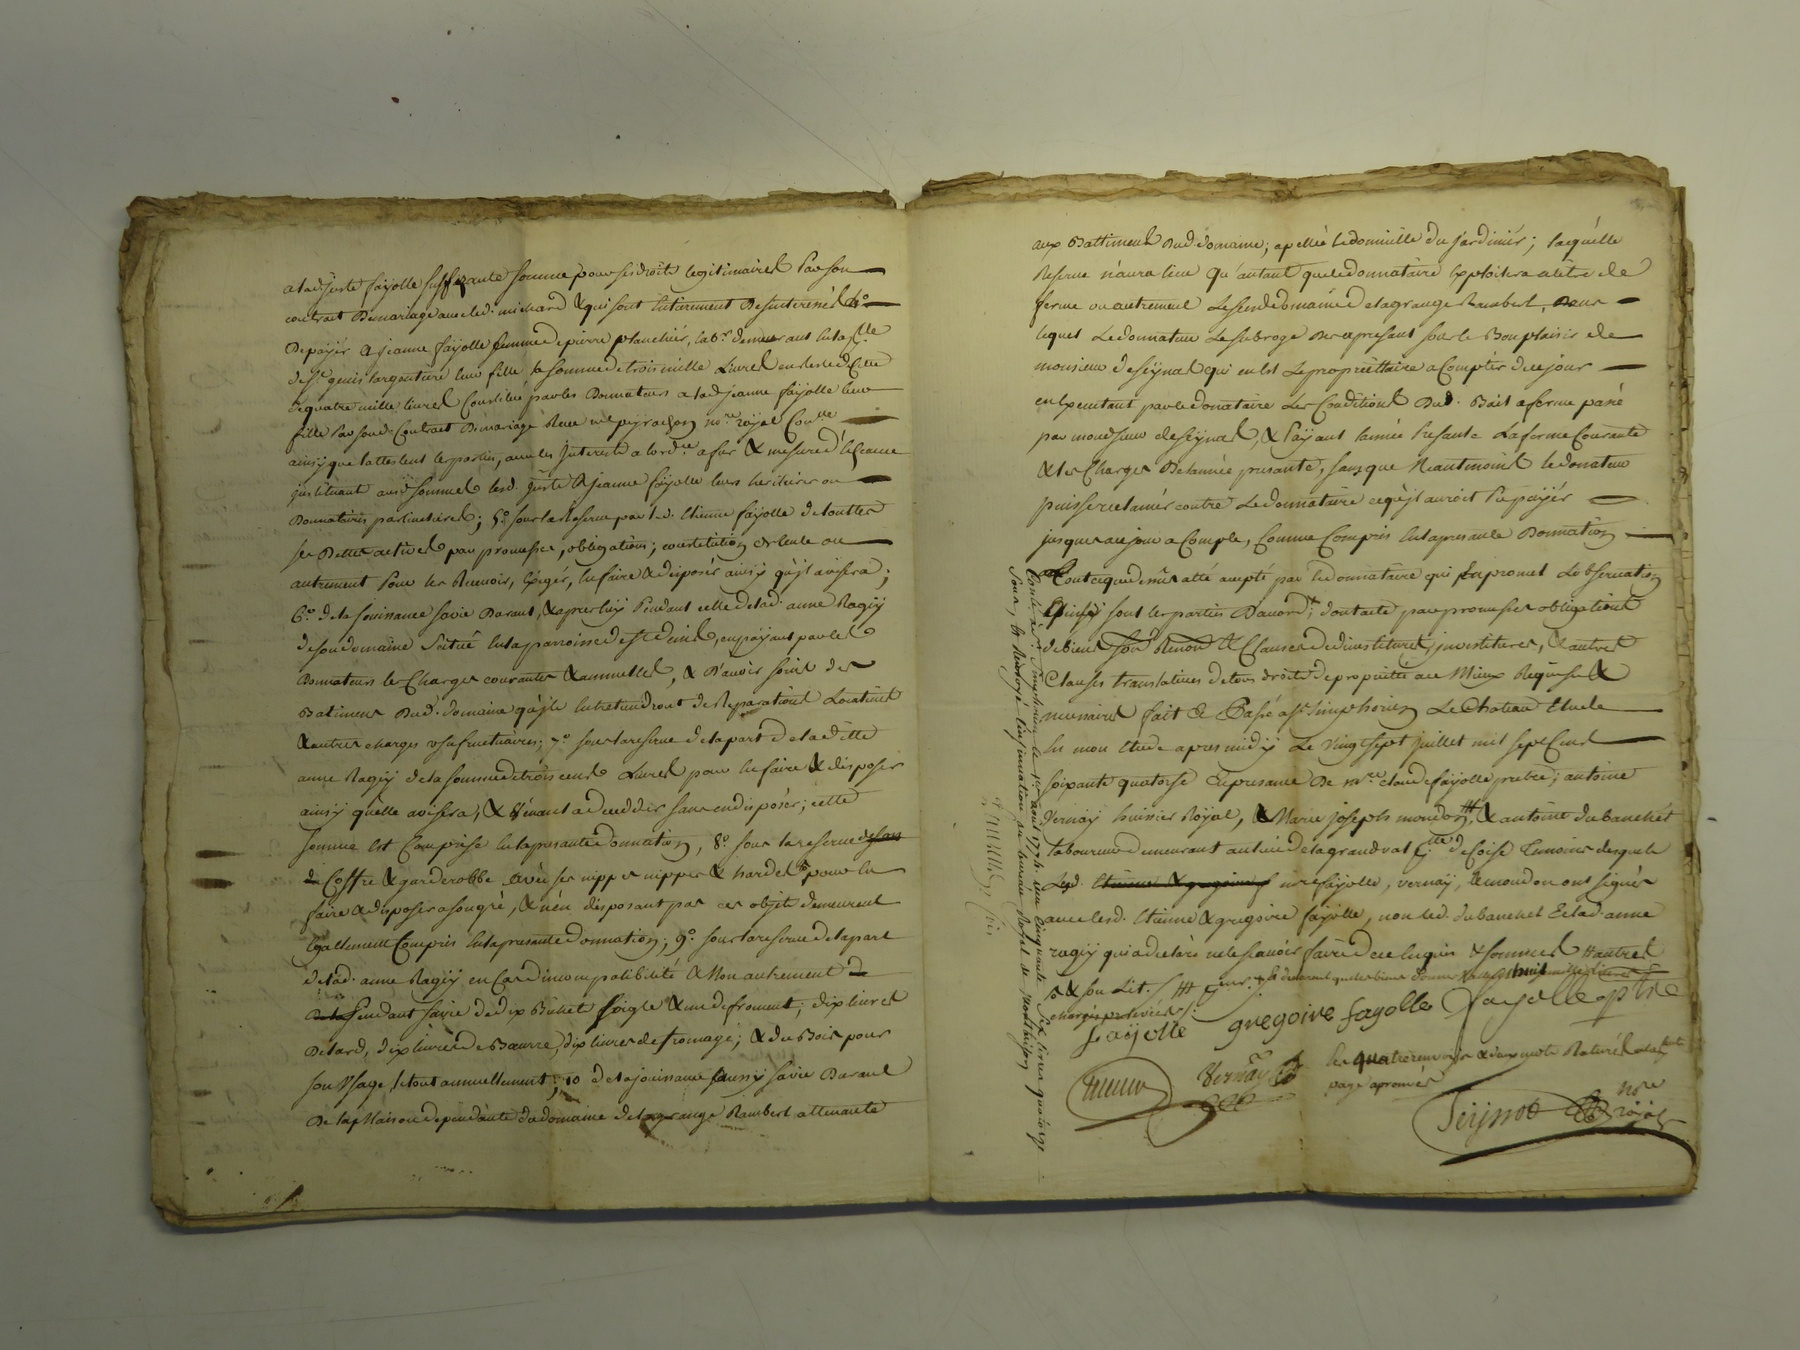 a lad. juste fayolle suffisante somme pour ses droits legitimaires par son
contrat de mariage avec led. michard & qui sont entierement desinteressés 4o.
de payér a jeanne fayolle femme de pierre planchér, lab.r demeurant en la p.lle
de st. genis largentiere leur fille la somme de trois mille livres en reste de celle
de quatre mille livres constitué par les donnateurs a lad. jeanne fayolle leur
fille par sond. contrat de mariage reçu me. peyrachon no.re royal
ainsy que lattestent les parties, avec les interests a lord.re a fur & mesure
instituant auxd. sommes lesd. juste & jeanne fayolle leurs heritieres ou
donnataires particulieres; 5o. sous la reserve par led. etienne fayolle de touttes
ses dettes actives par promesses, obligations; constitution de rente ou
autrement pour les recevoir, exigér, en faire & disposér ainsy qu'jl avisera;
6o. de la jouissance sa vie durant, & apres luy pendant celle de lad. anne Ragÿ
de son domaine scitué en la parroisse de en payant par les
donnateurs les charges courantes & annuelles, & d'avoir soin des
batimens dud. domaine qu'jls entretiendront de reparations locatives
& autres charges usufructuaires; 7o. sous la reserve de la part de laditte
anne Ragÿ de la somme de trois cens livres pour en faire & disposer
ainsy quelle avisera, & venant a deceddér sans en disposér; cette
somme est comprise en la presante donnation, 8o. sous la reserve de son
coffre & garderobbe avec ses nippes & hardes pour en
faire & disposer a son gré, & n'en disposant pas ces objets demeurent
egallement compris en la presante donnation; 9o. sous la reserve de la part
de lad. anne Ragÿ en cas d'incompatibilité & non autrement
pendant sa vie de dix bichet seigle & un de froment; dix livres
de lard, dix livres de beurre, dix livres de fromage; & du bois pour
son usage le tout annuellement; 10 de la jouissance aussy sa vie durant
de la maison dependante du domaine de la grange Rambert attenante
aux battiments dud. domaine; apellée le domicille du jardiniér; laquelle
reserve n'aura lieu qu'autant que le donnataire exploitera a titre de
ferme ou autrement led. domaine de la grange Rambert, dans
lequel le donnateur le subroge des a presant sous le bon plaisir de
monsieur deseÿnas qui en est le proprietaire a compter de ce jour
en executant par le donnataire les conditions dud. bail a ferme passé
par mondsieur deseÿnas, & payant lannée presante la ferme courante
& les charges de lannée presante, sans que neantmoins le donateur
puisse reclamér contre le donnataire ce qu'jl auroit pu payér
jusques au jour a compte, comme compris en la presante donnation
tout ce que dessus atté accepté par le donnataire qui en promet lobservation
Ainsy sont les parties d'accord; dont acte par promesses obligations
de biens & clauses de devestitures investitures, & autres
clauses translatives de tous droits de proprieté au mieux requises &
necessaires fait & passé a st. simphorien le chateau etude
en mon etude apres midÿ le vingt sept juillet mil sept cens
soixante quatorse en presance de m.re claude fayolle prebtre; antoine
vernay huissier royal, & marie joseph moudon, & antoine dubanchet
laboureur demeurant au lieu de la grand val p.lle de Coise temoins desquels
lesd. etienne & gregoire f m.re fayolle, vernaÿ, & moudon ont signés
avec lesd. etienne & gregoire fayolle, non led. dubanchet & lad. anne
ragÿ qui a declaré ne le savoir faire de ce enquis & sommés
& son lit.
charges preleveés
fayolle gregoire fayolle fayolle ptre
vernaÿ
les quatre renvois & mots raturés
page aprouvés
no.re royal
Controlé a st. simphorien le 1er. aout 1774 reçu cinquante six livres quatorse
sous, & renvoyé linsinuation au bureau royal de